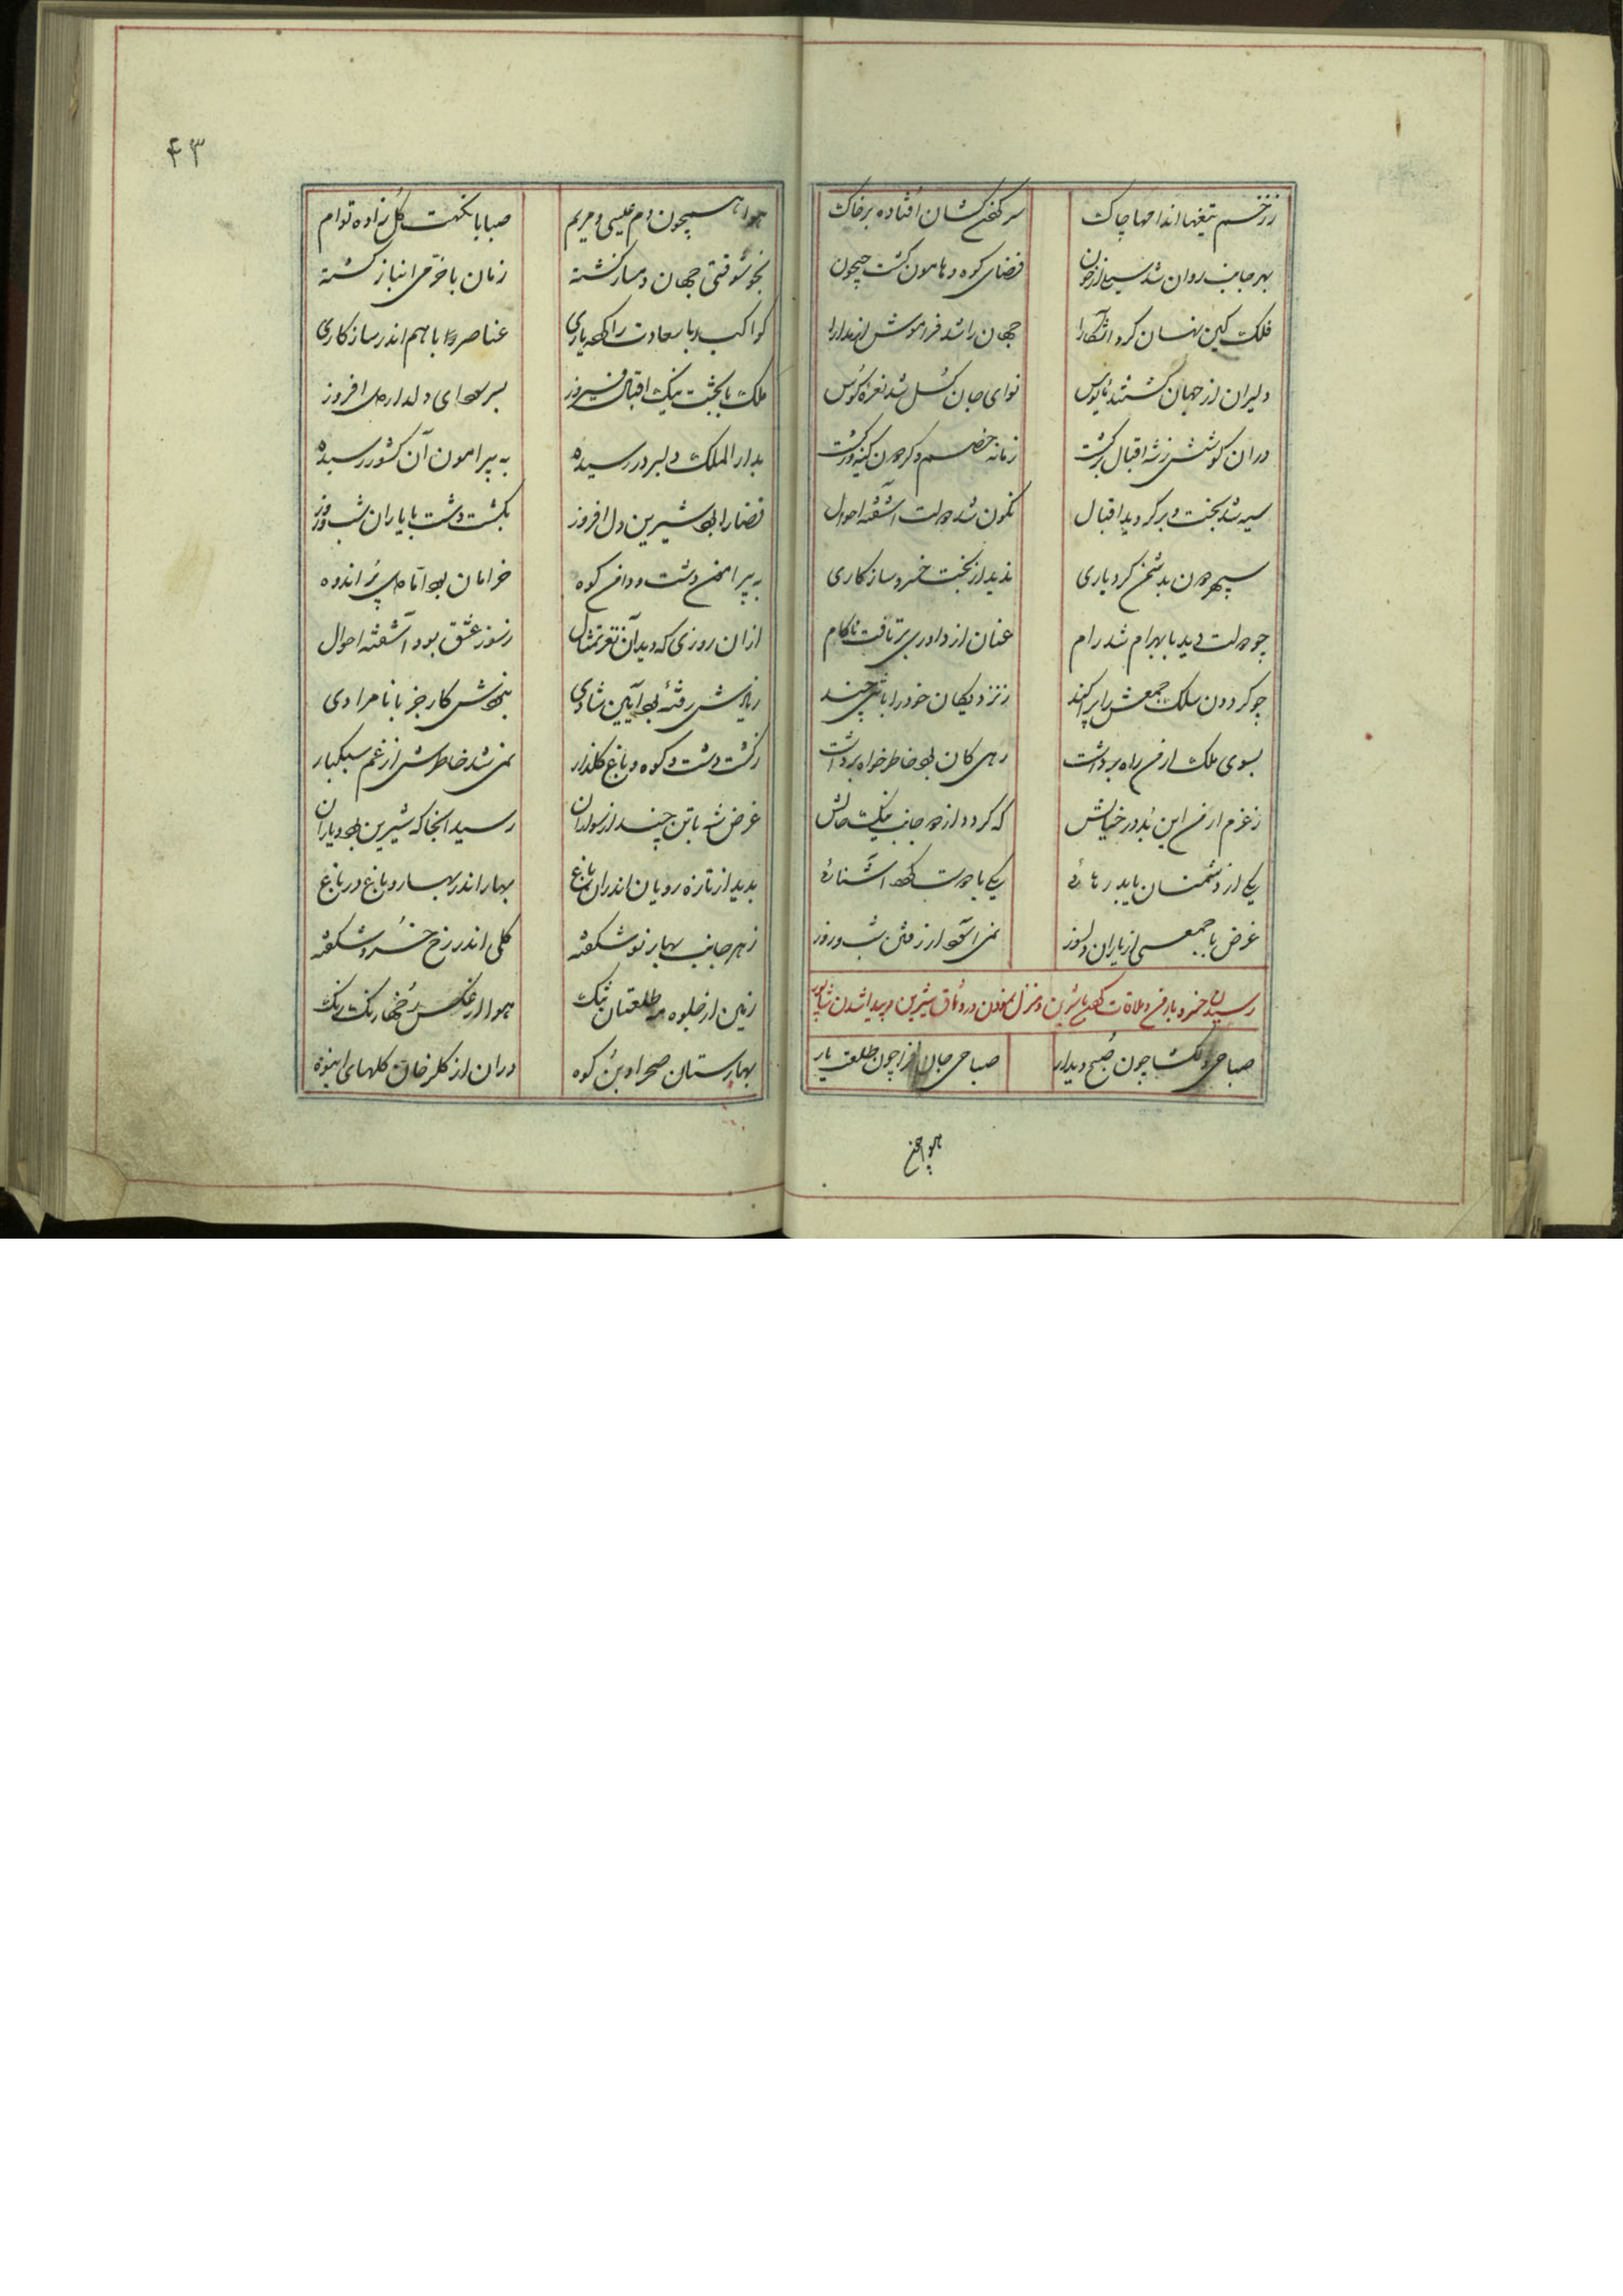 ززخم تیغها اندامها چاک
سرکفن‌کشان افتاده بر خاک
بهر جانب روان شد سیل از خون
فضای کوه و هامون گشت جیحون
فلک کین نهان کرد آشکارا
جهان را شد فراموش از مدارا
دلیران از جهان گشتند مایوس
نوای جان گسل شد نعره کوس
دران کوشش ز شه اقبال برگشت
زمانه خصم و گردون کینه‌ور گشت
سیه شد بخت و برگردید اقبال
نگون شد دولت آشفته احوال
سپهر دون بدشمن کرد یاری
ندید از بخت خسرو سازکاری
چو دولت دید با بهرام شد رام
عنان از داوری برتافت ناکام
چو گردون سلک جمعش را پراکند
ز نزدیکان خود را با تنی چند
بسوی ملک ارمن راه برداشت
رهی کان بود خاطرخواه برداشت
ز عزم ارمن این بد در خیالش
که گردد از دو جانب نیک حالش
یکی از دشمنان یابد رهائی
یکی با دوست کند آشنائی
غرض با جمعی از یاران دلسوز
نمی‌آسود از رفتن شب و روز
رسیدن خسرو بارمن و ملاقات کردن با شیرین و منزل نمودن در وثاق شیرین و پیدا شدن شاپور
صباحی دلگشا چون صبح دیدار
صباحی جان‌فزا چون طلعت یار
هوا همچون
۴۳
هوا همچون دم عیسی و مریم
صبا با نکهت گل زاده توام
بخوشوقتی جهان دمساز گشته
زمان با خرمی انباز گشته
کواکب را با سعادت راه یاری
عناصر را با هم اندر سازکاری
ملک با بخت نیک اقبال فیروز
بسر سودای دلدار دل افروز
بدار الملک دلبر در رسیده
به پیرامون آن کشور رسیده
قضا را بود شیرین دل افروز
بگشت دشت با یاران شب و روز
به پیرامن دشت و دامن کوه
خرامان بود اما دل پر اندوه
از ان روزی که دید آن نغز تمثال
ز سوز عشق بود آشفته احوال
ز یادش رفته بود آیین شادی
نبودش کار جز با نامرادی
ز گشت دشت و کوه و باغ و گلزار
نمی‌شد خاطرش از غم سبکبار
غرض شه با تن چند از سواران
رسید انجا که شیرین بود و یاران
بدید از تازه رویان اندران باغ
بهار اندر بهار و باغ در باغ
ز هر جانب بهار نو شکفته
گلی اندر رخ خسرو شکفته
زمین از جلوه مه طلعتان تنگ
هوا از عکس رخها رنگ رنگ
بهارستان صحرا و بن کوه
دران از گلرخان گلهای انبوه